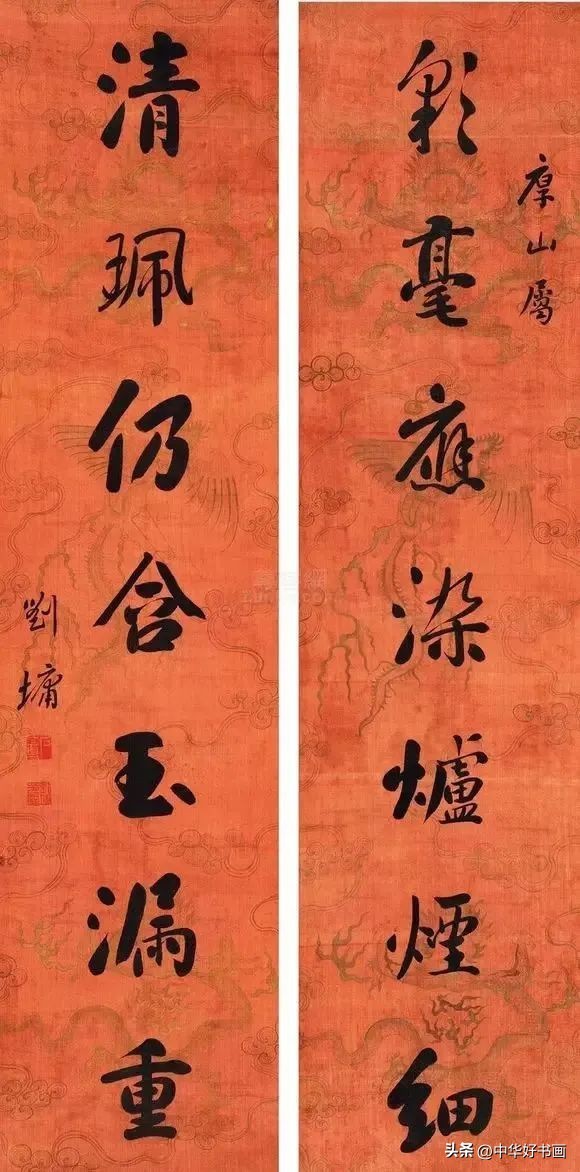 厚山屬
彩毫應染爐煙細
清珮仍含玉漏重
劉墉
头条 @中华好书画